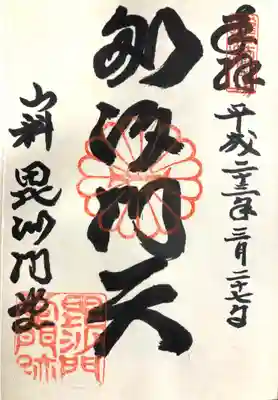 奉拝
平成二十三年三月二十七日
毘沙門天
山科 毘沙門堂
毘沙門
堂門跡